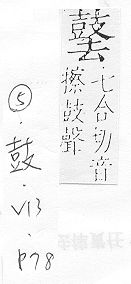 七合切音
擦鼓聲
⑤.鼓.V13.P78